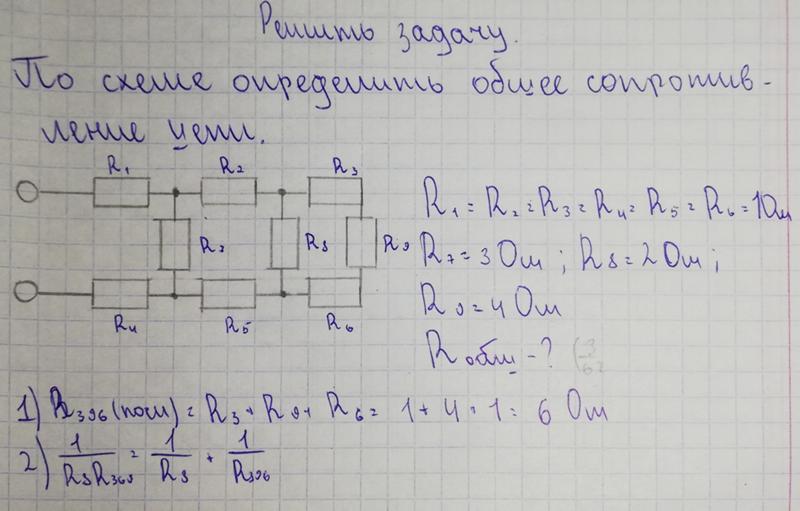 Решить задачу.
По схеме определить общее сопротив-
ление цепи.
R1 R2 R3
R7 R8 R9
R4 R5 R6
R1 = R2 = R3 = R4 = R5 = R6 = 1 Ом
R7 = 3 Ом ; R8 = 2 Ом ;
R9 = 4 Ом
Rобщ - ?
1) R396 (посл) = R3 + R9 + R6 = 1 + 4 + 1 = 6 Ом
2) 1/R8R369 = 1/R8 + 1/R396